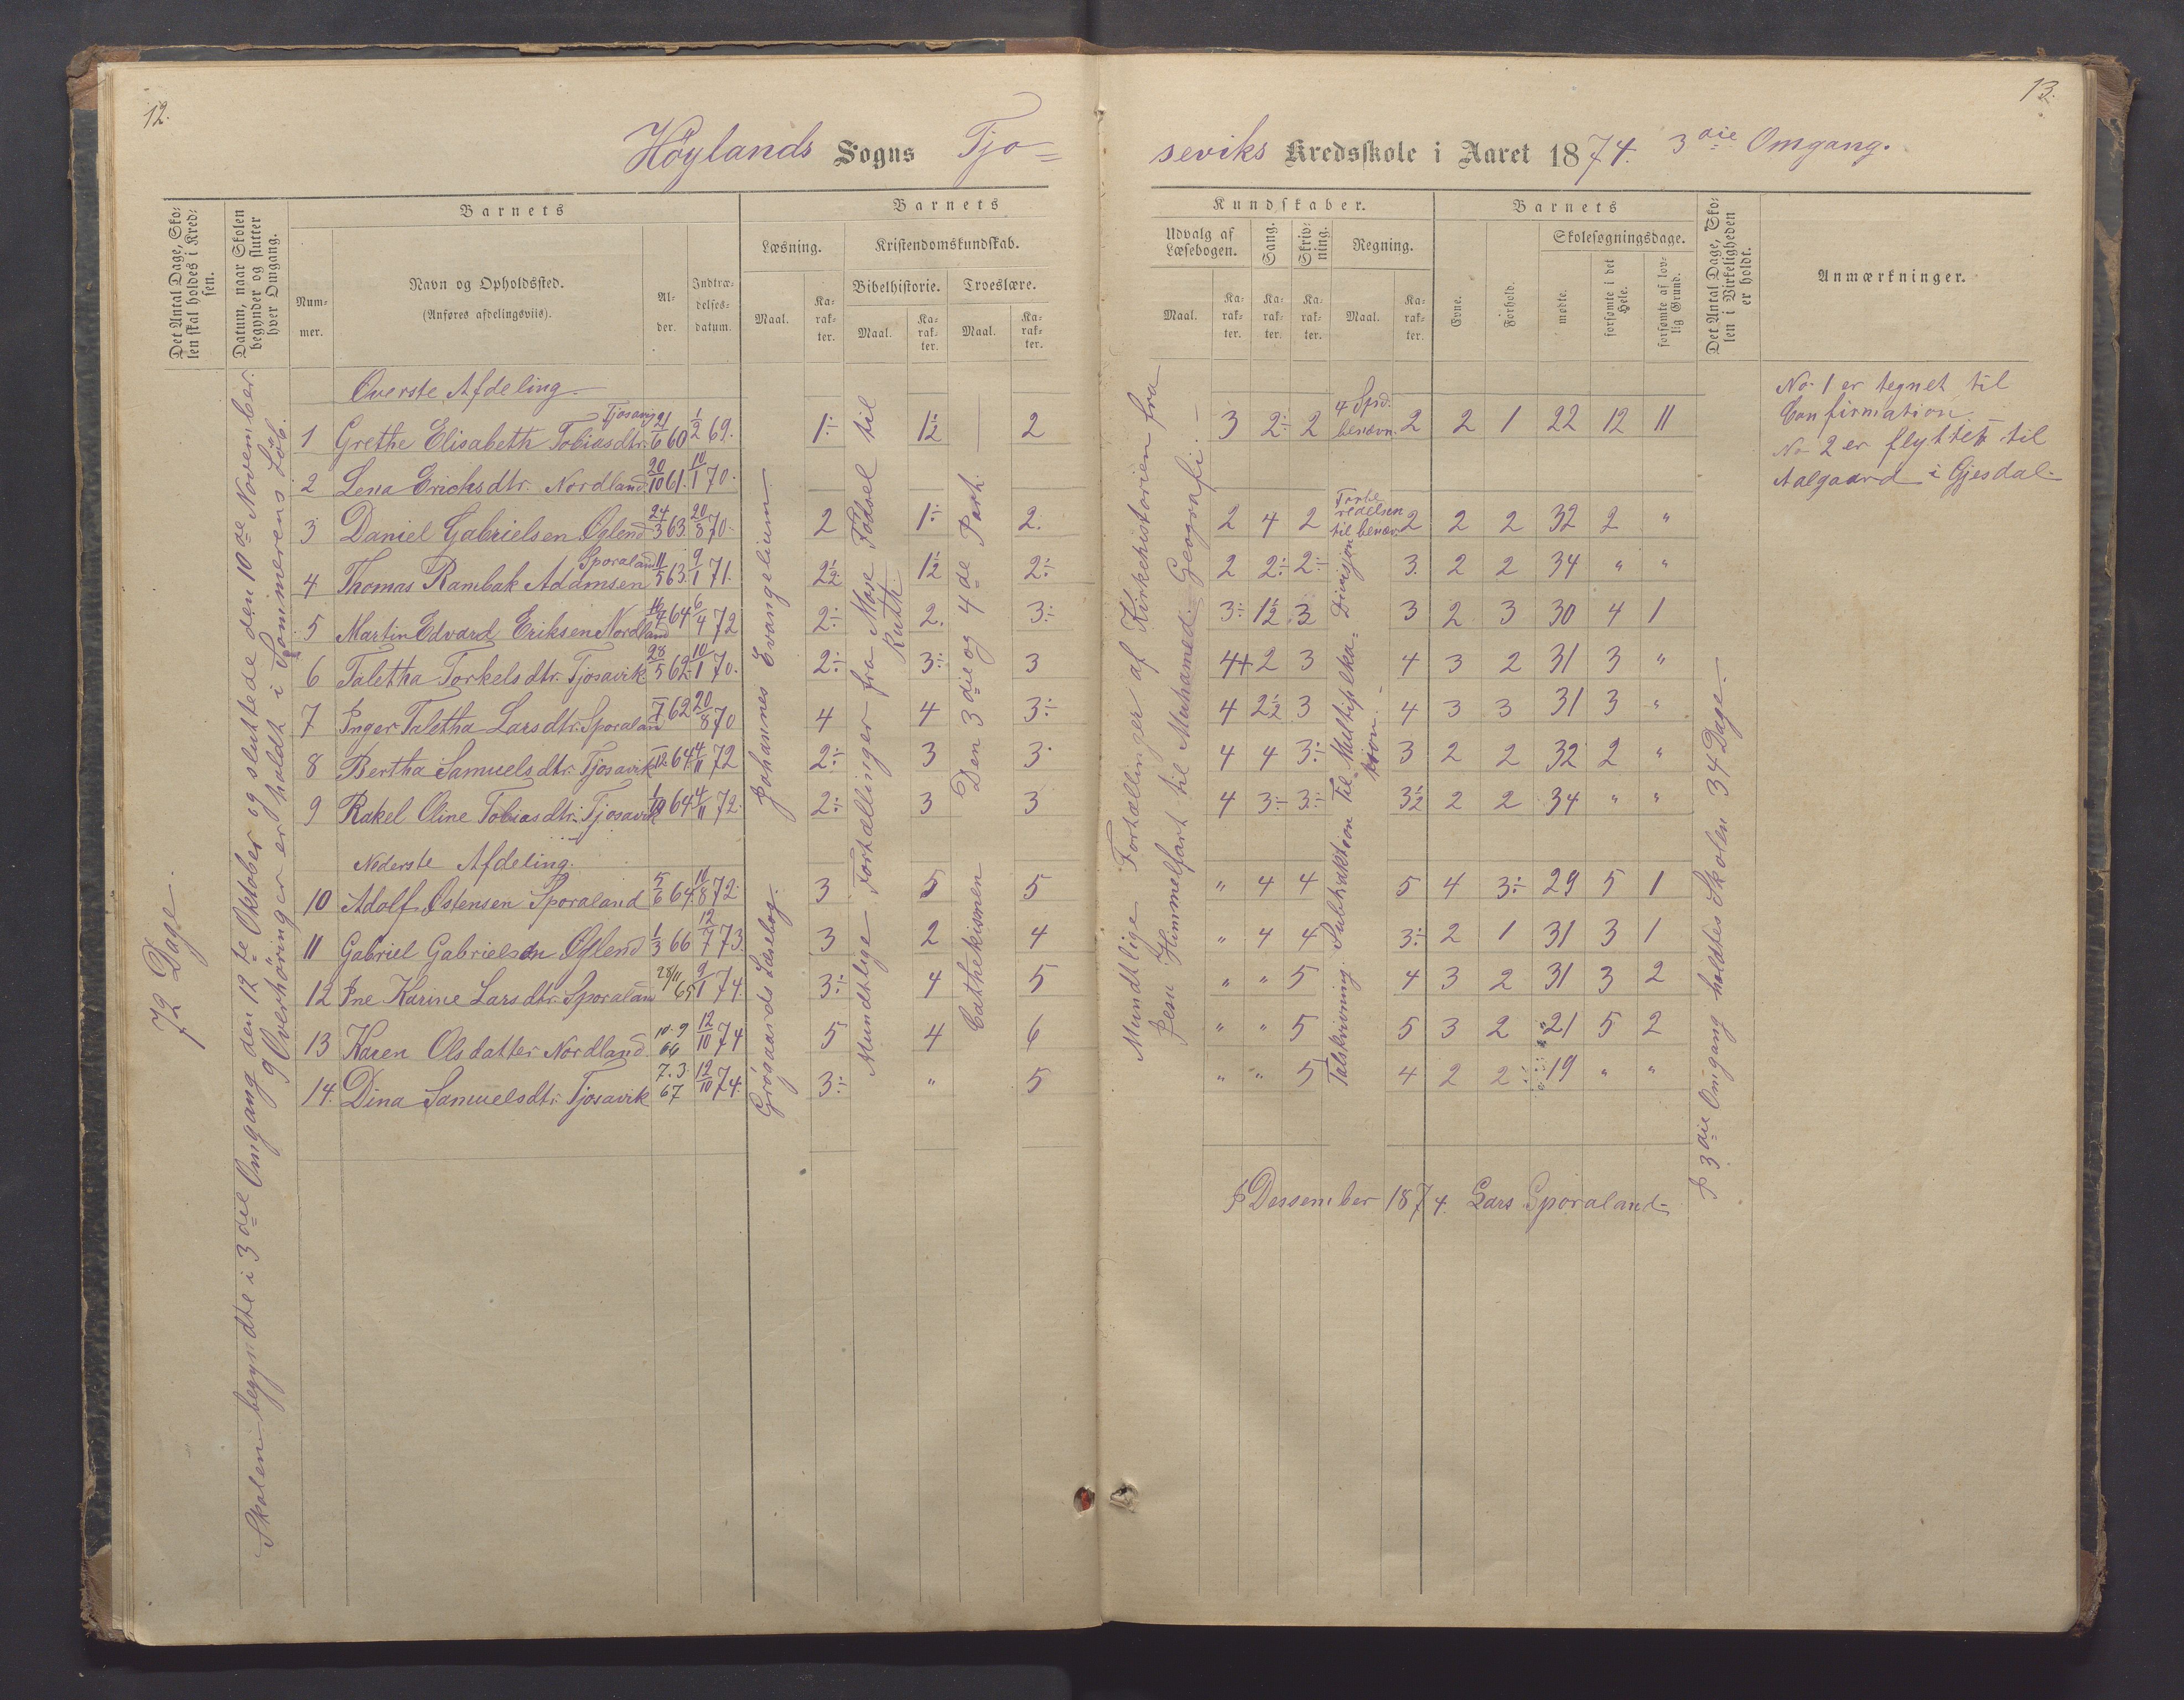 12.
Höylands Sogns Tjo=
Det Antal Dage, Sko-
len skal holdes i Kred-
sen.
Datum, naar Skolen
begynder og slutter
hver Omgang.
Barnets
Num-
mer.
Navn og Opholdssted.
(Anføres afdelingsviis).
Al-
der.
Indtræ-
delses-
datum.
Barnets
Læsning.
Maal.
Ka-
rak-
ter.
Kristendomskundskab.
Bibelhistorie.
Maal.
Ka-
rak-
ter.
Troeslære.
Maal.
Ka-
rak-
ter.
72 Dage.
Skolen begyndte i 3die Omgang den 12te Oktober og sluttede den 10de November.
9 Overhöringer er holdt i Sommerens Löb.
Johannes Evangelium.
Grögaards Læsebog.
Mundtlige Fortællinger fra Mose Födsel til
Ruth.
Cathekismen Den 3die og 4de Part
Överste Afdeling.
1 Grethe Elisabeth Tobiasdtr. Tjosavig 21/6 60 1/2 69. 1÷ 1½ 2
2 Lena Erichsdtr. Nordland 20/10 61. 10/1 70.
3 Daniel Gabrielsen Öglend 24/3 63. 20/8 70. 2 1÷ 2.
4 Thomas Rambak Adamsen Sporaland 11/5 63. 9/1 71. 2½ 1½ 2÷
5 Martin Edvard Eriksen Nordland 64 6/4 72 2÷ 2. 3÷
6 Taletha Torkelsdtr. Tjosavik 28/5 62. 10/1 70. 2÷ 3÷ 3
7 Inger Taletha Larsdtr. Sporaland 62 20/8 70 4 4 3÷
8 Bertha Samuelsdtr. Tjosavik 64 4/11 72 2÷ 3 3
9 Rakel Oline Tobiasdtr. Tjosavik 1/10 64 4/11 72. 2÷ 3 3
Nederste Afdeling.
10 Adolf Östensen Sporaland 5/6 64. 11/8 72. 3 5 5
11 Gabriel Gabrielsen Öglend 1/3 66 12/7 73. 3 2 4
12 Ine Karine Larsdtr. Sporaland 28/11 65 9/1 74. 3÷ 4 5
13 Karen Olsdatter Nordland 10.9 66 12/10 74 5 4 6
14. Dina Samuelsdtr. Tjosavik 7.3. 67 12/10 74. 3÷ " 5
13.
seviks Kredsskole i Aaret 1874. 3die Omgang.
Kundskaber.
Udvalg af
Læsebogen.
Maal.
Ka-
rak-
ter.
Sang.
Ka-
rak-
ter.
Skriv-
ning.
Ka-
rak-
ter.
Regning.
Maal.
Ka-
rak-
ter.
Barnets
Evne.
Forhold.
Skolesøgningsdage.
mødte.
forsømte i det
Hele.
forsømte af lov-
lig Grund.
Det Antal Dage, Sko-
len i Virkeligheden
er holdt.
Anmærkninger.
Mundtlige Fortællinger af Kirkehistorien fra
Jesu Himmelfart til Muhamed. Geografi.
4 Spd.
benævn.
til benæv.
Divisjon
Til Multiplika-
tion.
Talskrivning. Subtraktion
3 2÷ 2 2 2 1 22 12 11
2 4 2 2 2 2 32 2 "
2 2÷ 2÷ 3. 2 2 34 " "
3÷ 1½ 3 3 2 3 30 4 1
4+ 2 3 4 3 2 31 3 "
4 2½ 3 4 3 3 31 3 "
4 4 3÷ 3 2 2 32 2 "
4 3÷ 3÷ 3½ 2 2 34 " "
" 4 4 5 4 3÷ 29 5 1
" 4 4 3÷ 2 1 31 3 1
" " 5 4 3 2 31 3 2
" " 5 5 3 2 21 5 2
" " 5 4 2 2 19 " "
I 3die Omgang holdtes Skolen 34 Dage.
No 1 er tegnet til
Confirmation.
No 2 er flyttet til
Aalgaard i Gjesdal.
I Dessember 1874. Lars Sporaland.